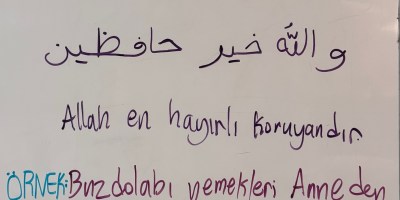 والله خير حافظين
Allah en hayırlı koruyandır.
ÖRNEK: Buzdolabı yemekleri Anneden